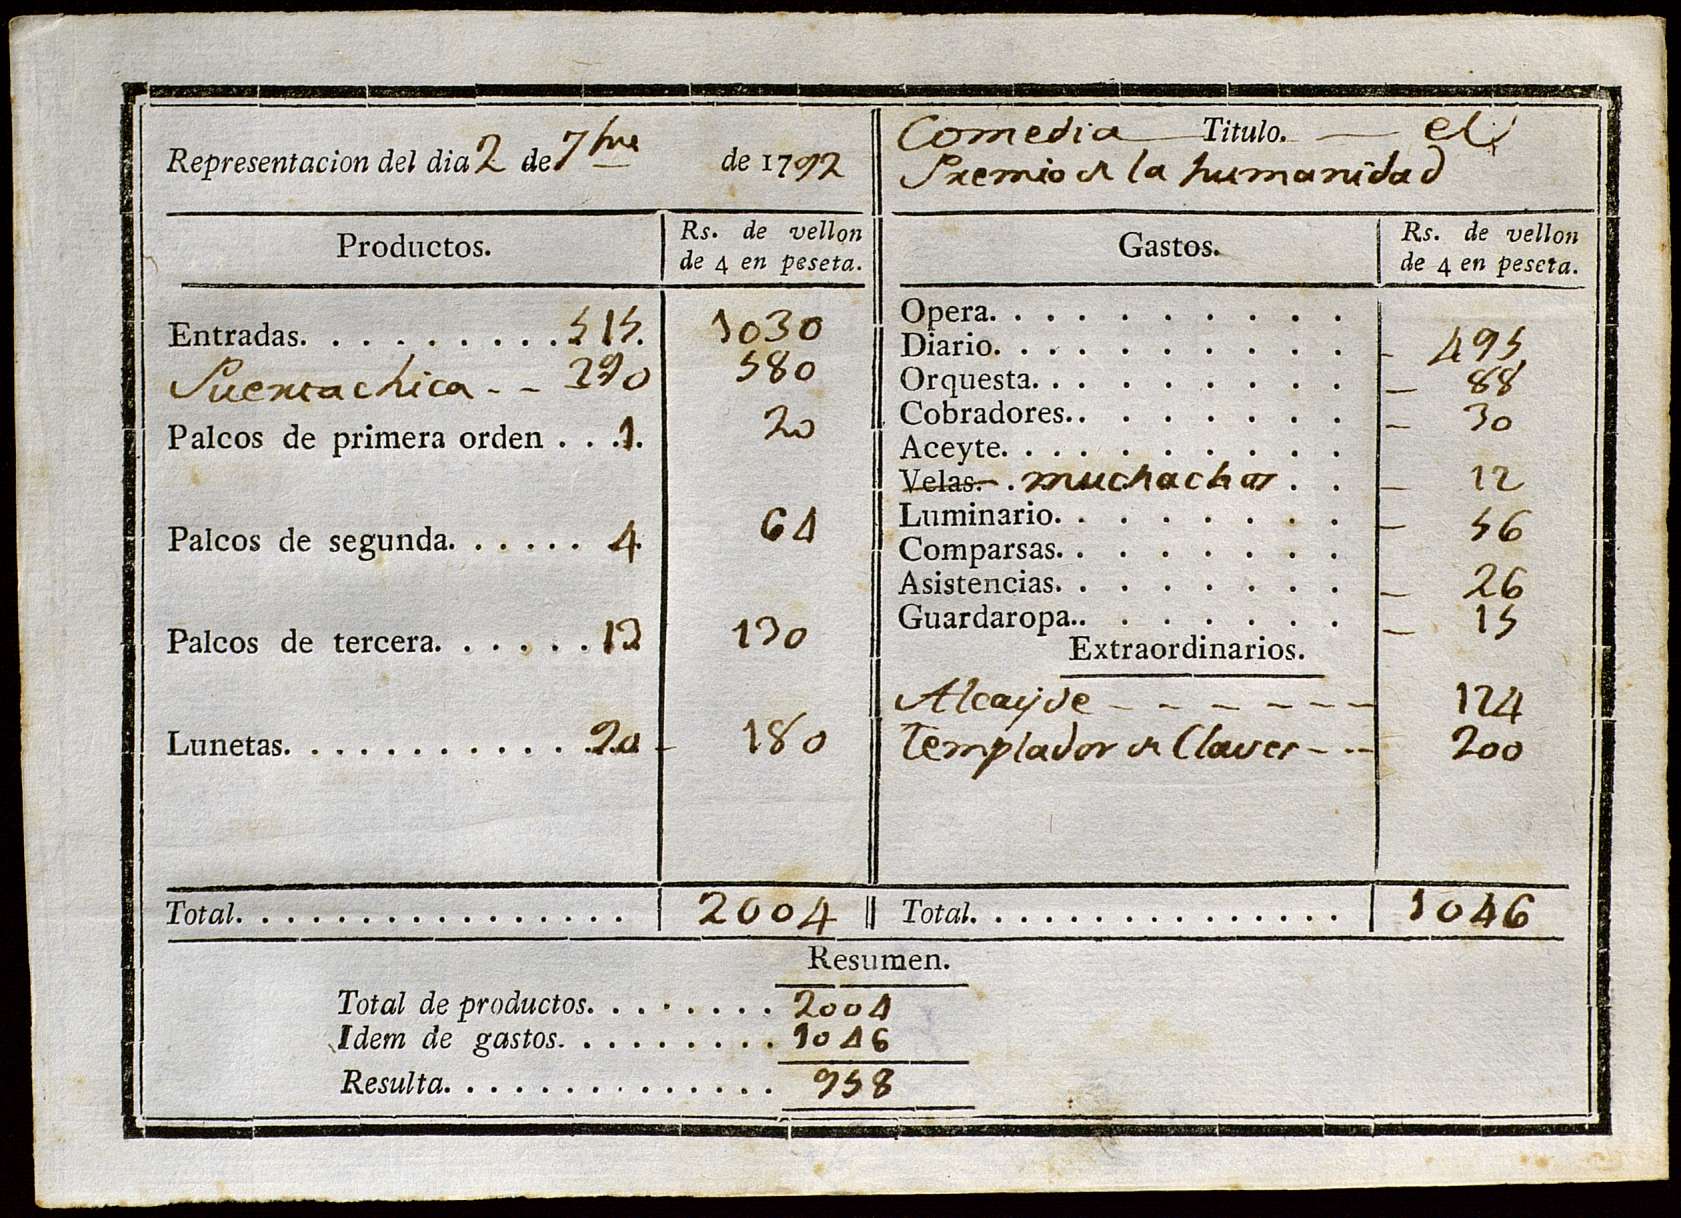 Representacion del dia 2 de 7bre de 1792
Productos.
Rs. de vellon
de 4 en peseta.
Entradas. . . . . . . . . 515. 1030
Puerta chica - - 290 580
Palcos de primera orden . . .1. 20
Palcos de segunda. . . . . . 4. 64
Palcos de tercera. . . . . . 13 130
Lunetas. . . . . . . . . . . 90 - 180
Total. . . . . . . . . . . . . . . . 2004
Comedia — Titulo. — el
Premio de la humanidad
Gastos.
Rs. de vellon
de 4 en peseta.
Opera. . . . . . . . . . .
Diario. . . . . . . . . . . - 495
Orquesta. . . . . . . . . . - 88
Cobradores.. . . . . . . . - 30
Aceyte. . . . . . . . . . .
Velas. . muchachos . . - 12
Luminario. . . . . . . . - 56
Comparsas. . . . . . . .
Asistencias. . . . . . . . - 26
Guardaropa.. . . . . . . - 15
Extraordinarios.
Alcayde - - - - - - - 124
Templador de Claves - - - 200
Total. . . . . . . . . . . . . . . 1046
Resumen.
Total de productos. . . . . . . . 2004
Idem de gastos. . . . . . . . . . 1046
Resulta. . . . . . . . . . . . . . 958